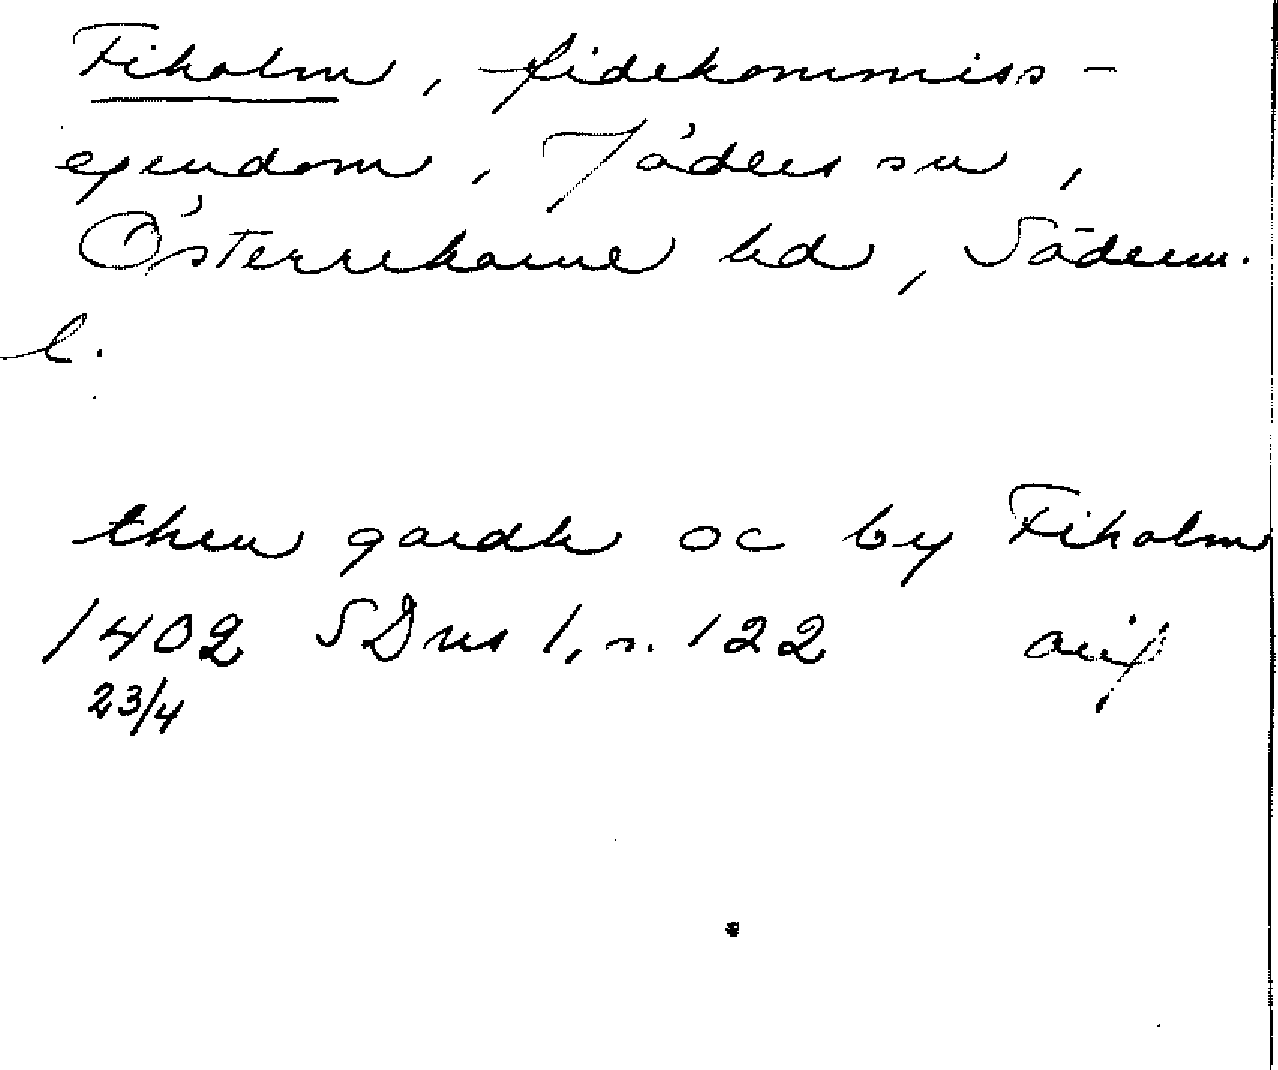 Fiholm, fidekommiss-
egendom, Jäders sn,
Österrekarne hd, Söderm.
l.
then gardh oc by Fiholm
1402 SDns 1, s. 122
23/4